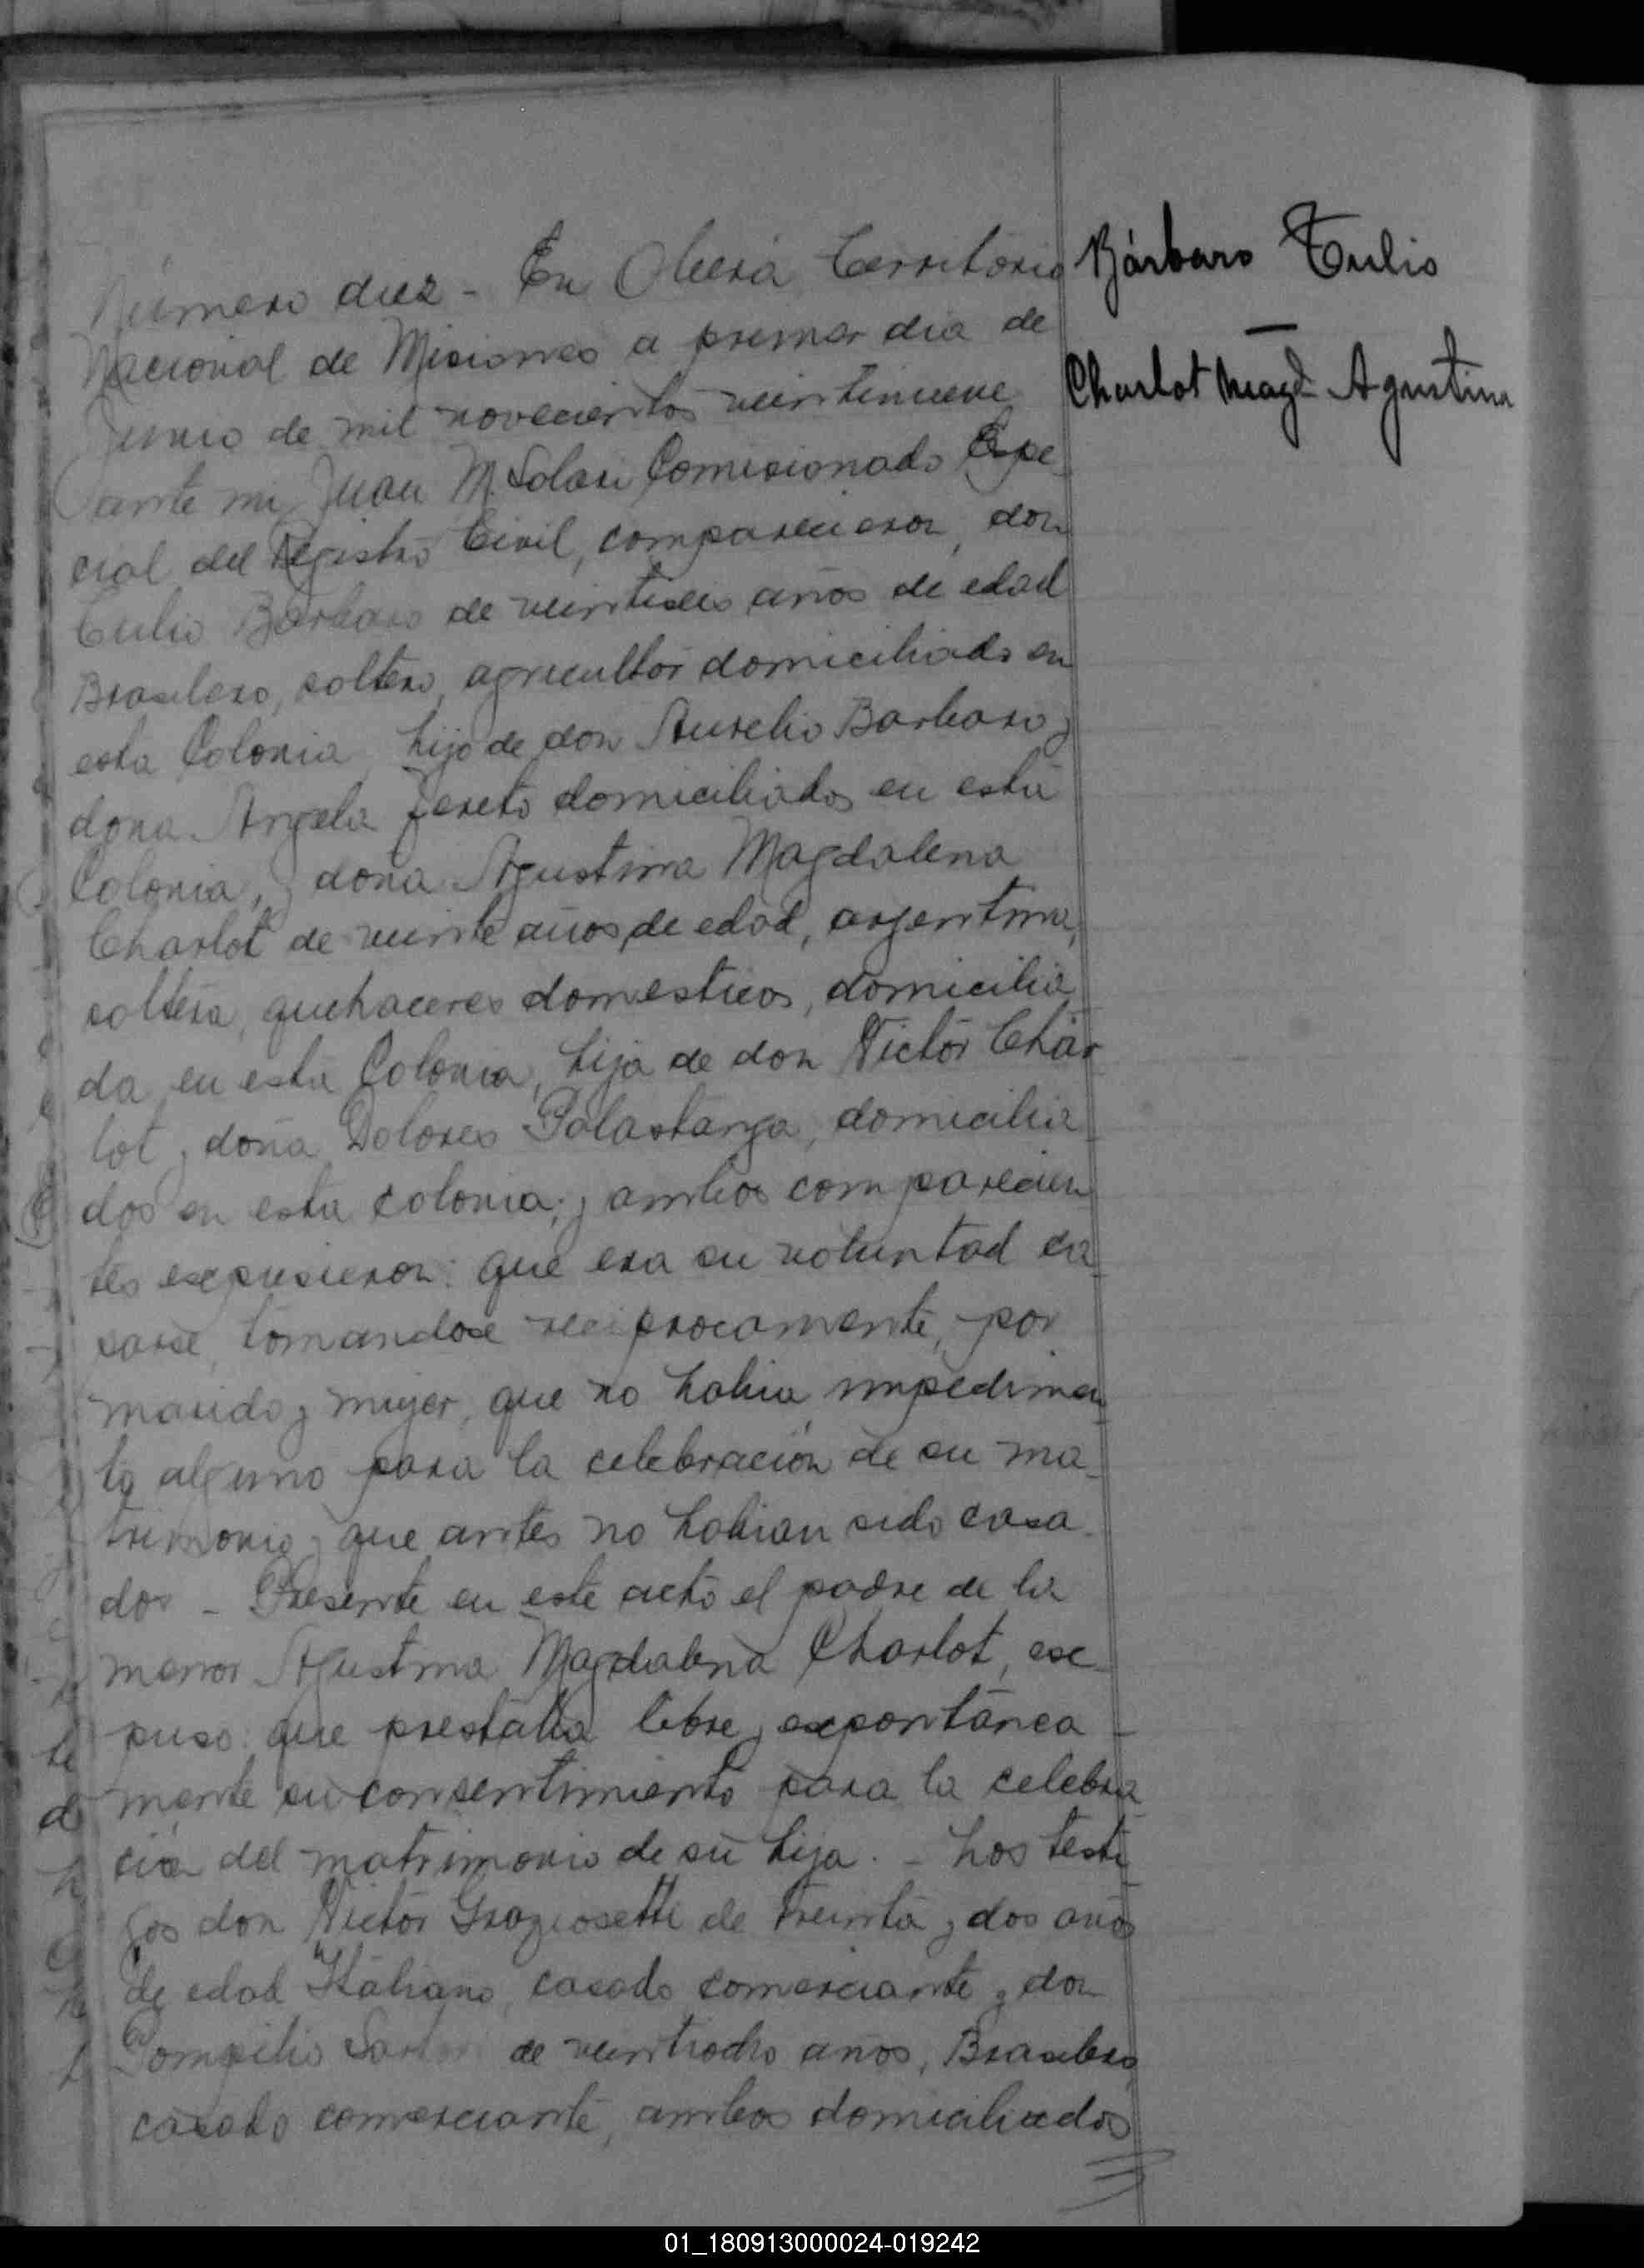 Número diez - En Oberá Territorio
Nacional de Misiones a primer dia de
Junio de mil novecientos veintinueve
ante mi Juan M. Solari Comisionado Espe-
cial del Registro Civil, comparecieron, don
Tulio Barbaro de veintiseis años de edad
Brasilero, soltero, agricultor domiciliado en
esta Colonia, hijo de don Aurelio Barbaro y
doña Angela domiciliados en esta
Colonia, y doña Agustina Magdalena
Charlot de veinte años de edad, argentina,
soltera, quehaceres domesticos, domicilia
da en esta Colonia, hija de don Victor Char
lot y doña Dolores Palastanga, domicilia
dos en esta colonia; y ambos comparecien
tes expusieron: que era su voluntad ca
sarse, tomandose reciprocamente, por
marido y mujer, que no habia impedimen
to alguno para la celebración de su ma-
trimonio y que antes no habian sido casa-
dos - Presente en este acto el padre de la
menor Agustina Magdalena Charlot, ex-
puso: que prestaba libre y espontánea -
mente su consentimiento para la celebra
ción del matrimonio de su hija. - Los testi
gos don Victor Graziosetti de treinta y dos años
de edad Italiano, casado comerciante y don
Pompilio de veintiocho años, Brasilero,
casado comerciante, ambos domiciliados
Bárbaro Tulio
-
Charlot Magd- Agustina
01_180913000024-019242